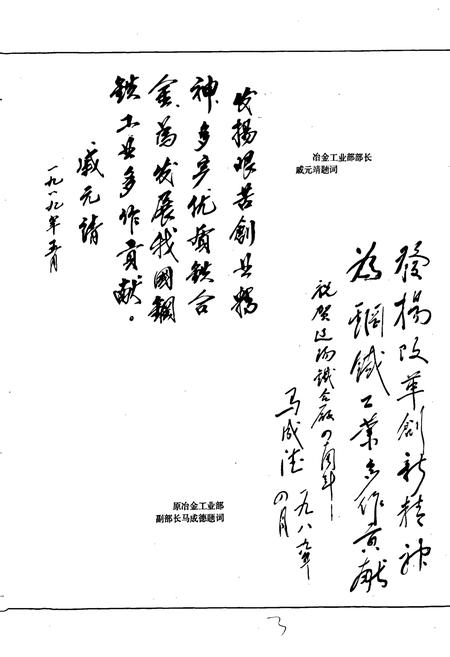 冶金工业部部长
戚元靖题词
发揚艰苦創业精
神，多产优质鉄合
金，為发展我國鋼
鉄工业多作貢献。
戚元靖
一九八九年五月
發揚改革創新精神
为鋼鐵工業多作貢献
祝贺辽阳鐵合金厂四十周年
马成德
一九八九年
四月
原冶金工业部
副部长马成德题词
3